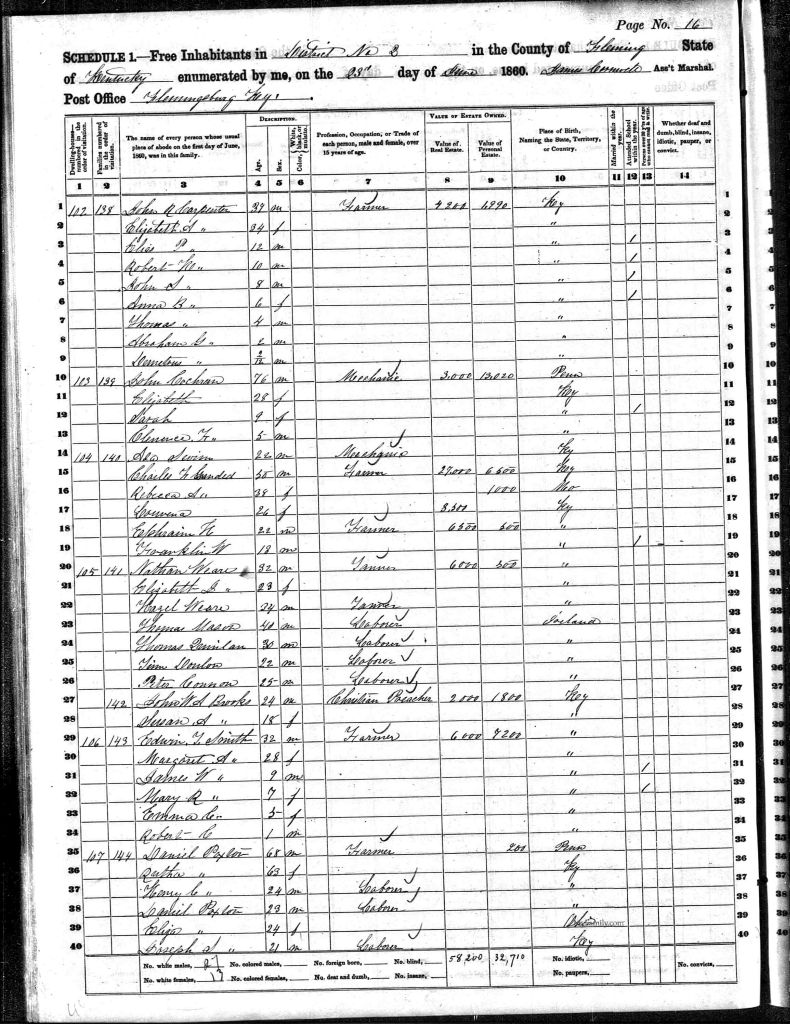 Page No. 16
SCHEDULE 1.—Free Inhabitants in District No 2 in the County of Fleming State
of Kentucky enumerated by me, on the 23d day of June 1860. James Ass't Marshal.
Post Office Flemingsburg Ky.
DESCRIPTION. VALUE OF ESTATE OWNED.
Dwelling-houses—numbered in the order of visitation. Families numbered in the order of visitation. The name of every person whose usual place of abode on the first day of June, 1860, was in this family. Age. Sex. Color, White, black, or mulatto. Profession, Occupation, or Trade of each person, male and female, over 15 years of age. Value of Real Estate. Value of Personal Estate. Place of Birth, Naming the State, Territory, or Country. Married within the year. Attended School within the year. Whether deaf and dumb, blind, insane, idiotic, pauper, or convict.
1 2 3 4 5 6 7 8 9 10 11 12 13 14
1 102 138 John R Carpenter 39 m Farmer 4200 6990 Key 1
2 Elizabeth S " 34 f " 2
3 P " 12 m " / 3
4 Robert " 10 m " / 4
5 John S " 8 m " / 5
6 Anna R " 6 f " / 6
7 Thomas " 4 m " 7
8 Abraham G " 2 m " 8
9 " m " 9
10 103 139 John Cochran 76 m Mechanic 3,000 13,020 Penn 10
11 Elizabeth 28 f Key 11
12 Sarah 9 f " / 12
13 Clemence 5 m " 13
14 104 140 22 m Mechanic Ky 14
15 Charles 50 m Farmer 27,000 6500 Key 15
16 Rebecca " 38 f 1000 Mo 16
17 26 f 8,500 Ky 17
18 Ephraim H 22 m Farmer 6500 500 " 18
19 Franklin W 18 m " / 19
20 105 141 Nathan Weare 32 m Tanner 6000 500 " 20
21 Elizabeth " 23 f " 21
22 Hazel Weare 24 m Tanner " 22
23 Thomas Mason 40 m Laborer Ireland 23
24 Thomas Quinlan 30 m Laborer " 24
25 Tim Donlon 22 m Laborer " 25
26 Peter Connon 25 m Laborer " 26
27 142 John W S Brooks 24 m Christian Preacher 2000 1800 Key 27
28 Susan A " 18 f " 28
29 106 143 Edwin T Smith 32 m Farmer 6000 7200 " 29
30 Margaret A " 28 f " 30
31 James W " 9 m " / 31
32 Mary R " 7 f " / 32
33 Emma C " 5 f " 33
34 Robert C 1 m " 34
35 107 144 Daniel Poxton 68 m Farmer 200 Penn 35
36 Rutha " 63 f Ky 36
37 Henry C " 24 m Laborer " 37
38 Daniel Poxton 23 m Laborer " 38
39 Eliza " 24 f 39
40 Joseph S " 21 m Laborer Key 40
No. white males, 27 No. colored males, No. foreign born, No. blind, 58,200 32,710 No. idiotic, No. convicts,
No. white females, 13 No. colored females, No. deaf and dumb, No. insane, No. paupers,